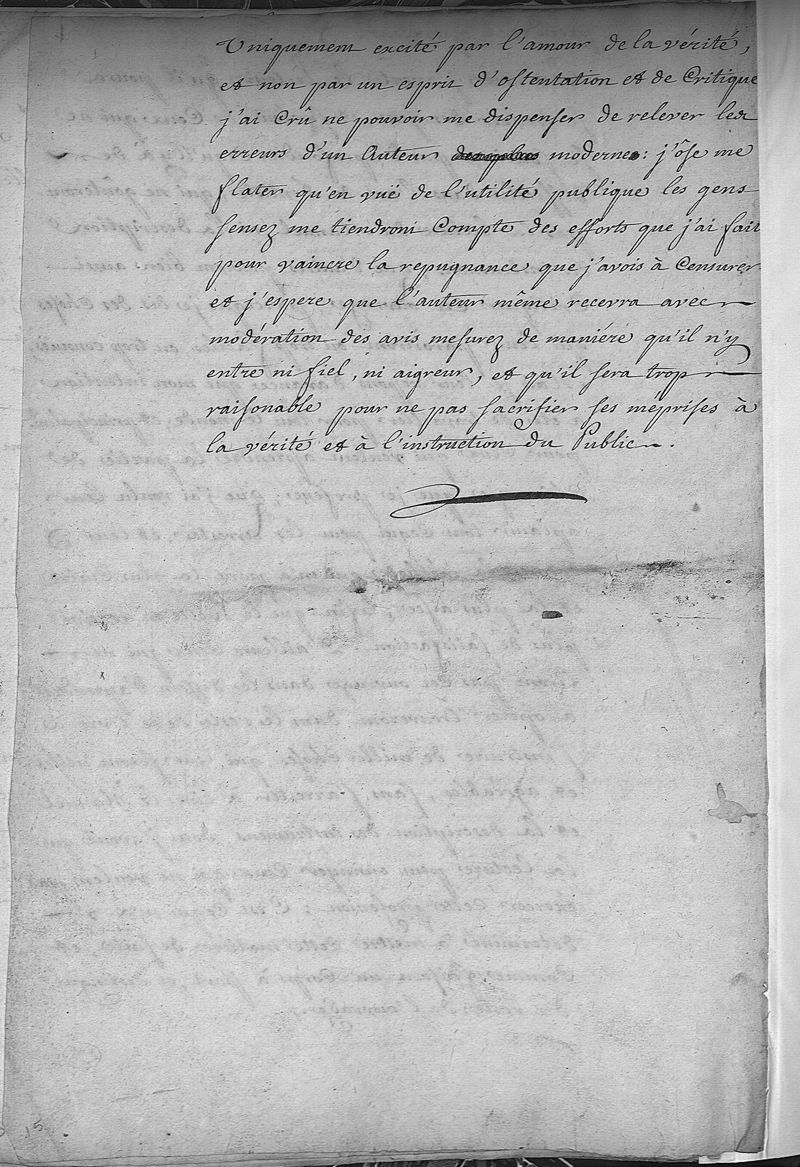 Uniquement excité par l'amour de la vérité,
et non par un esprit d'ostentation et de Critique
j'ai Crû ne pouvoir me dispenser de relever les
erreurs d'un Auteur moderne: j'ôse me
flater qu'en vuë de l'utilité publique les gens
sensez me tiendront Compte des efforts que j'ai fait
pour vaincre la repugnance que j'avois à Censurer
et j'espere que l'auteur même recevra avec
modération des avis mesurez de maniére qu'il n'y
entre ni fiel, ni aigreur, et qu'il sera trop
raisonable pour ne pas sacrifier ses méprises à
la vérité et à l'instruction du Public.
15